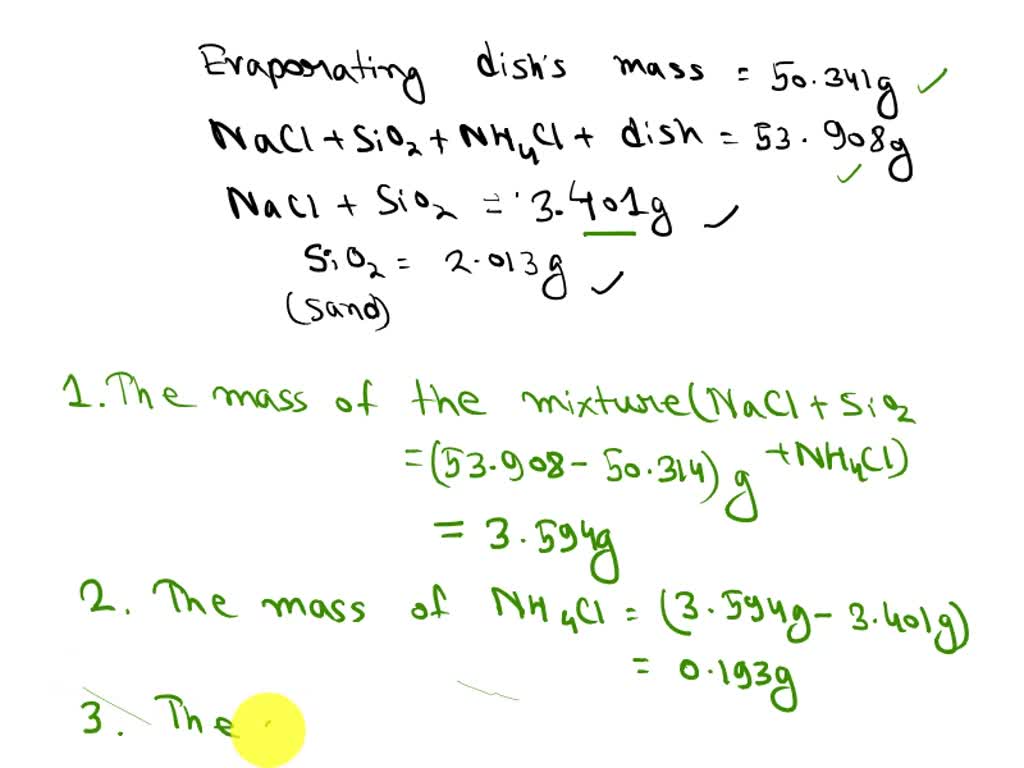 Evaporating dish's mass = 50.341g ✓
NaCl + SiO₂ + NH₄Cl + dish = 53.908g ✓
NaCl + SiO₂ = 3.401g ✓
SiO₂ = 2.013g ✓
(sand)
1. The mass of the mixture (NaCl + SiO₂
+ NH₄Cl)
= (53.908 - 50.314) g
= 3.594g
2. The mass of NH₄Cl = (3.594g - 3.401g)
= 0.193g
3. The